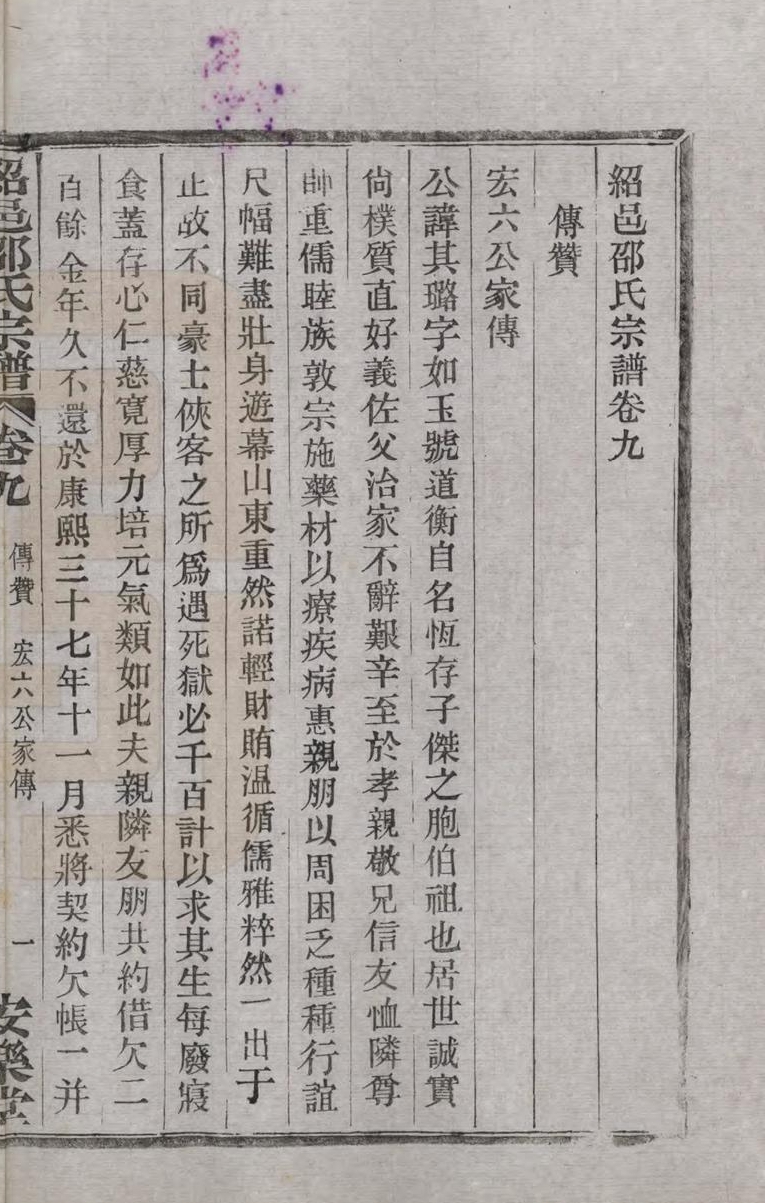 紹邑邵氏宗譜卷九
傳贊
宏六公家傳
公諱其璐字如玉號道衡自名恆存子傑之胞伯祖也居世誠實
尙樸質直好義佐父治家不辭艱辛至於孝親敬兄信友恤隣尊
師重儒睦族敦宗施藥材以療疾病惠親朋以周困乏種種行誼
尺幅難盡壯身遊幕山東重然諾輕財賄溫循儒雅粹然一出于
正故不同豪士俠客之所爲遇死獄必千百計以求其生每廢寢
食蓋存心仁慈寬厚力培元氣類如此夫親隣友朋共約借欠二
百餘金年久不還於康熙三十七年十一月悉將契約欠帳一并
紹邑邵氏宗譜 卷九 傳贊 宏六公家傳 一 安樂堂